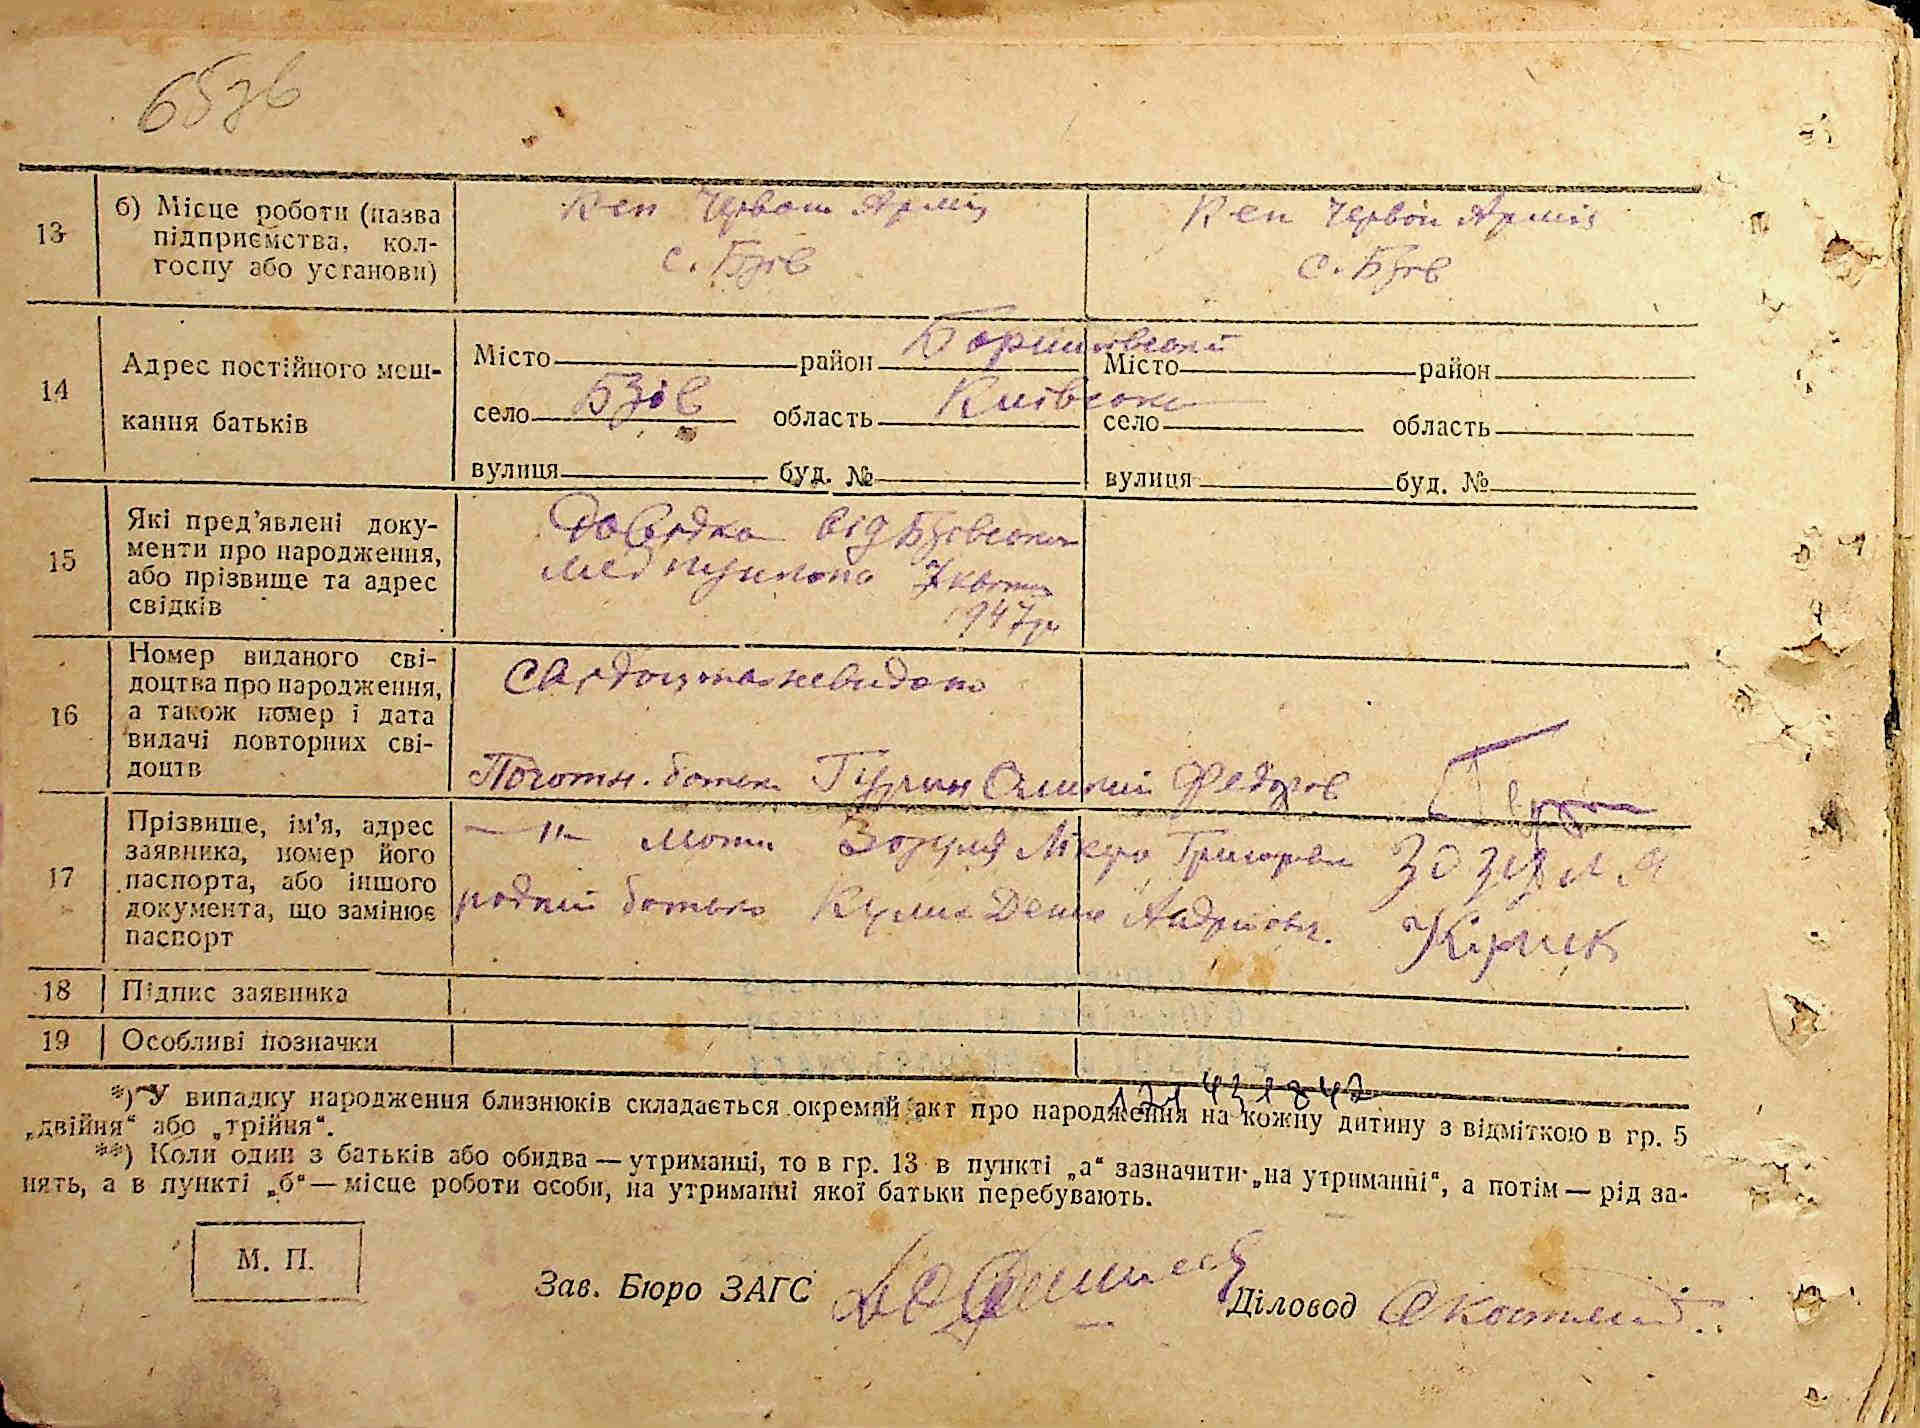 13 б) Місце роботи (назва
підприємства, кол-
госпу або установи)
Червон Армія
с. Бзів
Червон Армія
с. Бзів
14 Адрес постійного меш-
кання батьків
Місто район
село Бзів область Київська
вулиця буд. №
Місто район
село область
вулиця буд. №
15 Які пред'явлені доку-
менти про народження,
або прізвище та адрес
свідків
Довідка від Бзівськ
медпункта 7 квітн
1947 р
16 Номер виданого сві-
доцтва про народження,
а також номер і дата
видачі повторних сві-
доцтв
свідоцтво невидано
17 Прізвище, ім'я, адрес
заявника, номер його
паспорта, або іншого
документа, що замінює
паспорт
батьки Федоров
—"— мати Зозуля Григорів Зозуля
родний батько Кулик Денис Андрійович. Кулик
18 Підпис заявника
19 Особливі позначки
*) У випадку народження близнюків складається окремий акт про народження на кожну дитину з відміткою в гр. 5
„двійня“ або „трійня“.
**) Коли один з батьків або обидва — утриманці, то в гр. 13 в пункті „а“ зазначити „на утриманні“, а потім — рід за-
нять, а в пункті „б“ — місце роботи особи, на утриманні якої батьки перебувають.
М. П.
Зав. Бюро ЗАГС
Діловод